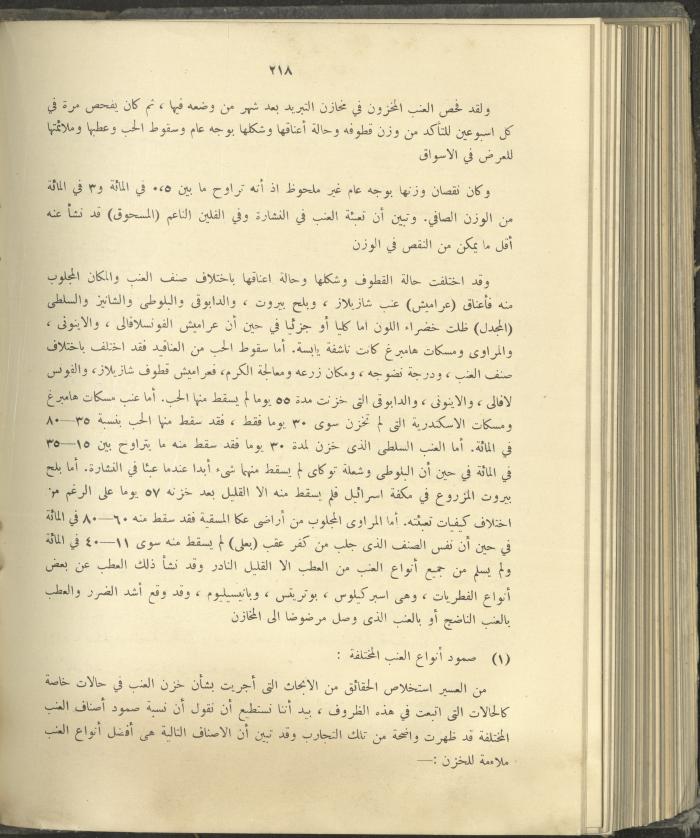 ٢١٨
ولقد فحص العنب المخزون في مخازن التبريد بعد شهر من وضعه فيها ، ثم كان يفحص مرة في
كل اسبوعين للتأكد من وزن قطوفه وحالة أعناقها وشكلها بوجه عام وسقوط الحب وعطبها وملائمتها
للعرض في الاسواق
وكان نقصان وزنها بوجه عام غير ملحوظ اذ أنه تراوح ما بين ٠،٥ في المائة و٣ في المائة
من الوزن الصافي. وتبين أن تعبئة العنب في النشارة وفي الفلين الناعم (المسحوق) قد نشأ عنه
أقل ما يمكن من النقص في الوزن
وقد اختلفت حالة القطوف وشكلها وحالة اعناقها باختلاف صنف العنب والمكان المجلوب
منه فأعناق (عراميش) عنب شازيلاز ، وبلح بيروت ، والدابوقى والبلوطى والشانيز والسلطى
(المجدل) ظلت خضراء اللون اما كليا أو جزئيا في حين أن عراميش الفونسلافالى ، والاينونى ،
والمراوى ومسكات هامبرغ كانت ناشفة يابسة. أما سقوط الحب من العناقيد فقد اختلف باختلاف
صنف العنب ، ودرجة نضوجه ، ومكان زرعه ومعالجة الكرم، فعراميش قطوف شازيلاز، والفونس
لافالى ، والاينونى ، والدابوقى التى خزنت مدة ٥٥ يوما لم يسقط منها الحب. أما عنب مسكات هامبرغ
ومسكات الاسكندرية التى لم تخزن سوى ٣٠ يوما فقط ، فقد سقط منها الحب بنسبة ٣٥—٨٠
في المائة. أما العنب السلطى الذى خزن لمدة ٣٠ يوما فقد سقط منه ما يتراوح بين ١٥—٣٥
في المائة في حين أن البلوطى وشعلة توكاى لم يسقط منهما شىء أبدا عندما عبئا في النشارة. أما بلح
بيروت المزروع في مكفة اسرائيل فلم يسقط منه الا القليل بعد خزنه ٥٧ يوما على الرغم من
اختلاف كيفيات تعبئته. أما المراوى المجلوب من أراضى عكا المسقية فقد سقط منه ٦٠—٨٠ في المائة
في حين أن نفس الصنف الذى جلب من كفر عقب (بعلى) لم يسقط منه سوى ١١—٤٠ في المائة
ولم يسلم من جميع أنواع العنب من العطب الا القليل النادر وقد نشأ ذلك العطب عن بعض
أنواع الفطريات ، وهى اسبركيلوس ، بوتريتس ، وبانيسيليوم ، وقد وقع أشد الضرر والعطب
بالعنب الناضج أو بالعنب الذى وصل مرضوضا الى المخازن
(١) صمود أنواع العنب المختلفة :
من العسير استخلاص الحقائق من الابحاث التى أجريت بشأن خزن العنب في حالات خاصة
كالحالات التى اتبعت في هذه الظروف ، بيد أننا نستطيع أن نقول أن نسبة صمود أصناف العنب
المختلفة قد ظهرت واضحة من تلك التجارب وقد تبين أن الاصناف التالية هى أفضل أنواع العنب
ملاءمة للخزن :—